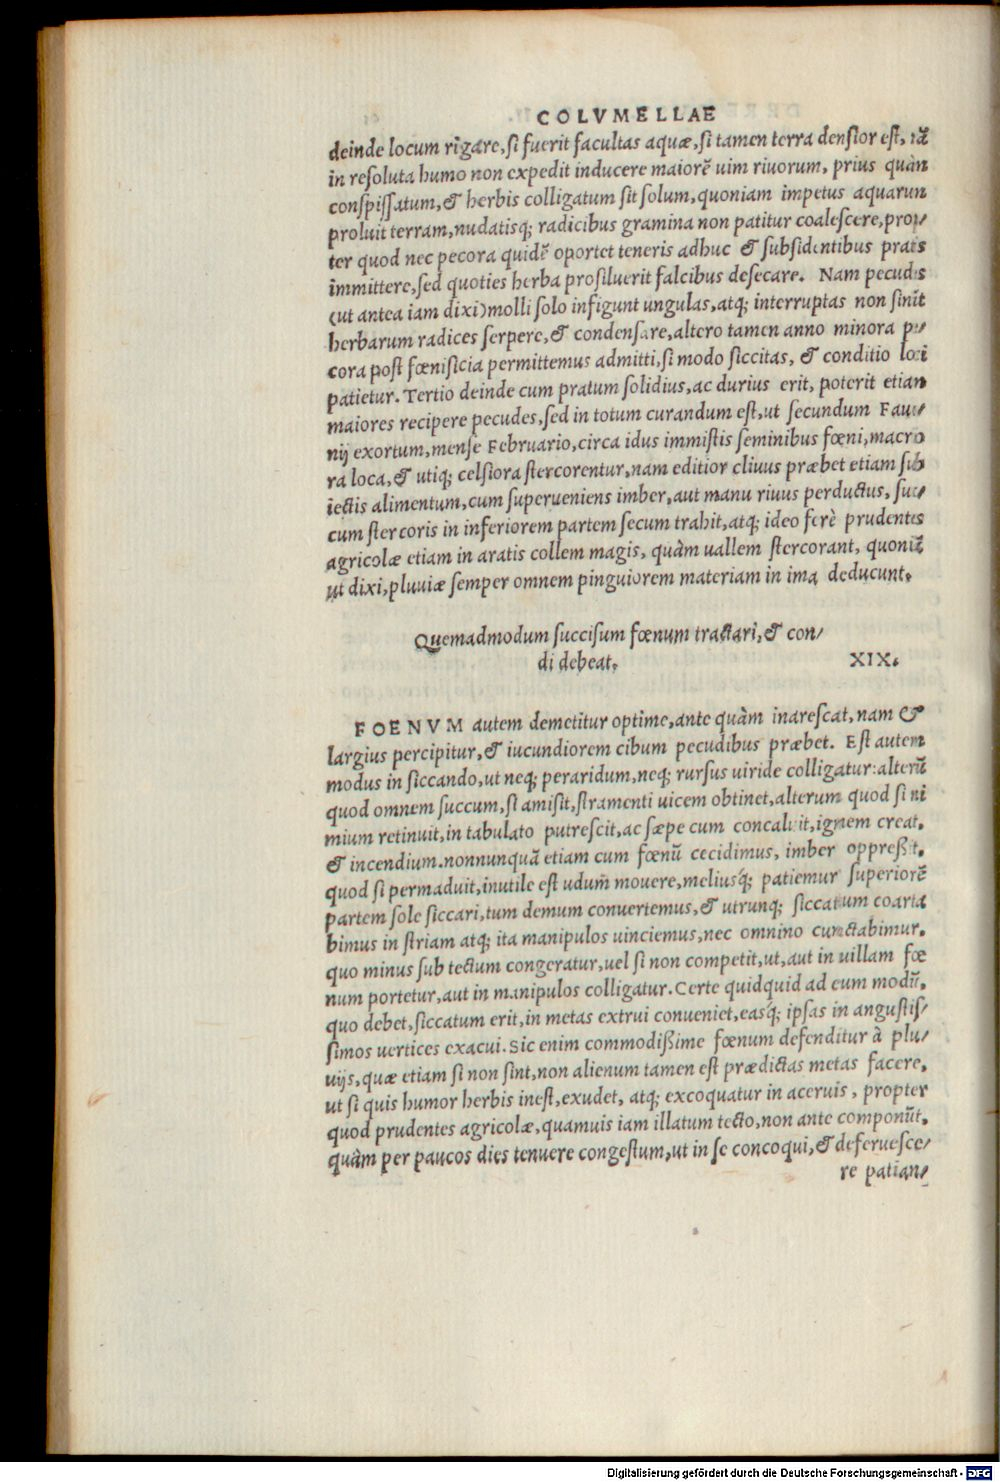 COLVMELLAE
deinde locum rigare, si fuerit facultas aquæ, si tamen terra densior est, nã
in resoluta humo non expedit inducere maiorẽ uim riuorum, prius quàm
conspissatum, & herbis colligatum sit solum, quoniam impetus aquarum
proluit terram, nudatisq; radicibus gramina non patitur coalescere, prop/
ter quod nec pecora quidẽ oportet teneris adhuc & subsidentibus pratis
immittere, sed quoties herba prosiluerit falcibus desecare. Nam pecudes
(ut antea iam dixi) molli solo infigunt ungulas, atq; interruptas non sinũt
herbarum radices serpere, & condensare, altero tamen anno minora pe/
cora post fœnisicia permittemus admitti, si modo siccitas, & conditio loci
patietur. Tertio deinde cum pratum solidius, ac durius erit, poterit etiam
maiores recipere pecudes, sed in totum curandum est, ut secundum Fauo/
nij exortum, mense Februario, circa idus immistis seminibus fœni, macro
ra loca, & utiq; celsiora stercorentur, nam editior cliuus præbet etiam sub
iectis alimentum, cum superueniens imber, aut manu riuus perductus, suc/
cum stercoris in inferiorem partem secum trahit, atq; ideo ferè prudentes
agricolæ etiam in aratis collem magis, quàm uallem stercorant, quoniã
ut dixi, pluuiæ semper omnem pinguiorem materiam in ima deducunt.
Quemadmodum succisum fœnum tractari, & con/
di debeat. XIX.
FOENVM autem demetitur optime, ante quàm inarescat, nam &
largius percipitur, & iucundiorem cibum pecudibus præbet. Est autem
modus in siccando, ut neq; peraridum, neq; rursus uiride colligatur: alterũ
quod omnem succum, si amisit, stramenti uicem obtinet, alterum quod si ni
mium retinuit, in tabulato putrescit, ac sæpe cum concaluit, ignem creat,
& incendium. nonnunquã etiam cum fœnũ cecidimus, imber oppreßit,
quod si permaduit, inutile est udum mouere, meliusq́; patiemur superiorẽ
partem sole siccari, tum demum conuertemus, & utrunq; siccatum coarta
bimus in striam atq; ita manipulos uinciemus, nec omnino cunctabimur,
quo minus sub tectum congeratur, uel si non competit, ut, aut in uillam fœ
num portetur, aut in manipulos colligatur. Certe quidquid ad eum modũ,
quo debet, siccatum erit, in metas extrui conueniet, easq́; ipsas in angustis/
simos uertices exacui. Sic enim commodißime fœnum defenditur à plu/
uijs, quæ etiam si non sint, non alienum tamen est prædictas metas facere,
ut si quis humor herbis inest, exudet, atq; excoquatur in aceruis, propter
quod prudentes agricolæ, quamuis iam illatum tecto, non ante componũt,
quàm per paucos dies tenuere congestum, ut in se concoqui, & deferuesce/
re patian/
Digitalisierung gefördert durch die Deutsche Forschungsgemeinschaft - DFG